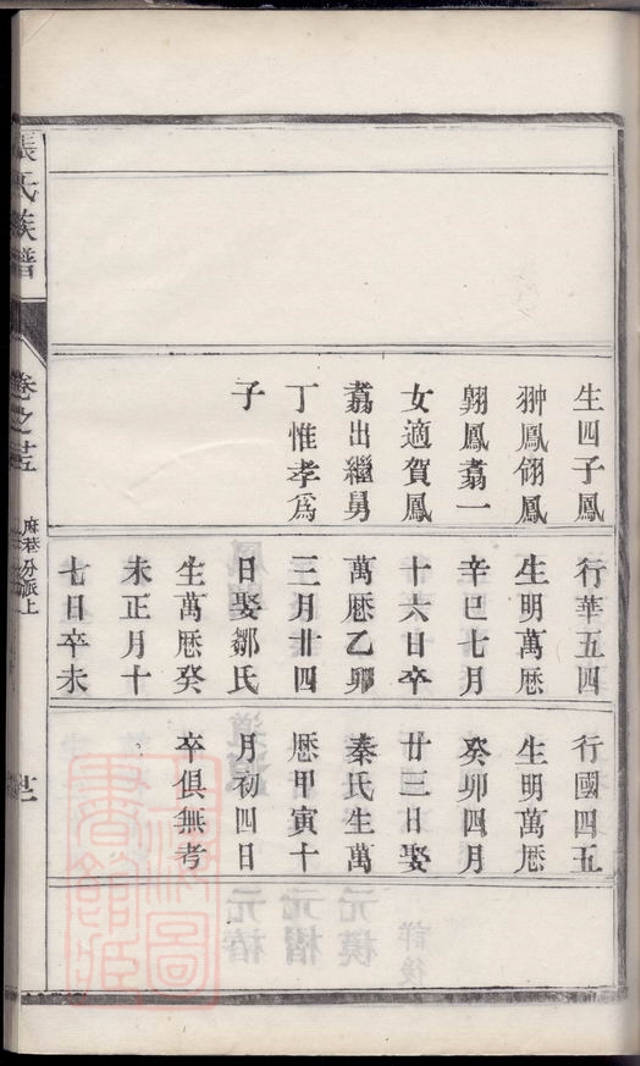 生四子鳳
翀鳳翎鳳
翺鳳翥一
女適賀鳳
翥出繼舅
丁惟孝爲
子
行華五四
生明萬厯
辛巳七月
十六日卒
萬厯乙卯
三月廿四
日娶鄒氏
生萬厯癸
未正月十
七日卒未
行國四五
生明萬厯
癸卯四月
廿三日娶
秦氏生萬
厯甲寅十
月初四日
卒俱無考
張氏族譜
卷之
麻巷分派上